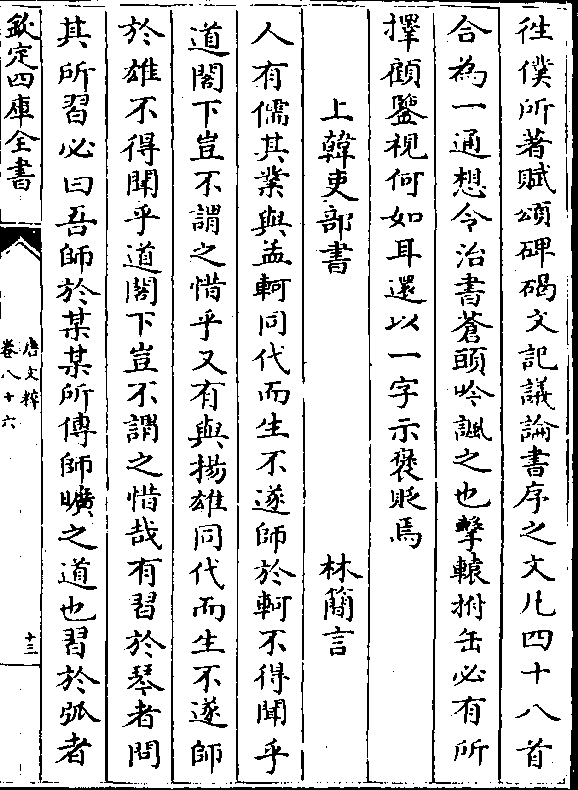 徃僕所著賦頌碑碣文記議論書序之文凡四十八首
合為一通想令治書蒼頭吟諷之也擊轅拊缶必有所
擇顧鑒視何如耳還以一字示襃貶焉
上韓吏部書 林簡言
人有儒其業與孟軻同代而生不遂師於軻不得聞乎
道閣下豈不謂之惜乎又有與揚雄同代而生不遂師
於雄不得聞乎道閣下豈不謂之惜哉有習於琴者問
其所習必曰吾師於某某所傅師曠之道也習於弧者
欽定四庫全書
唐文粹
卷八十六
十三